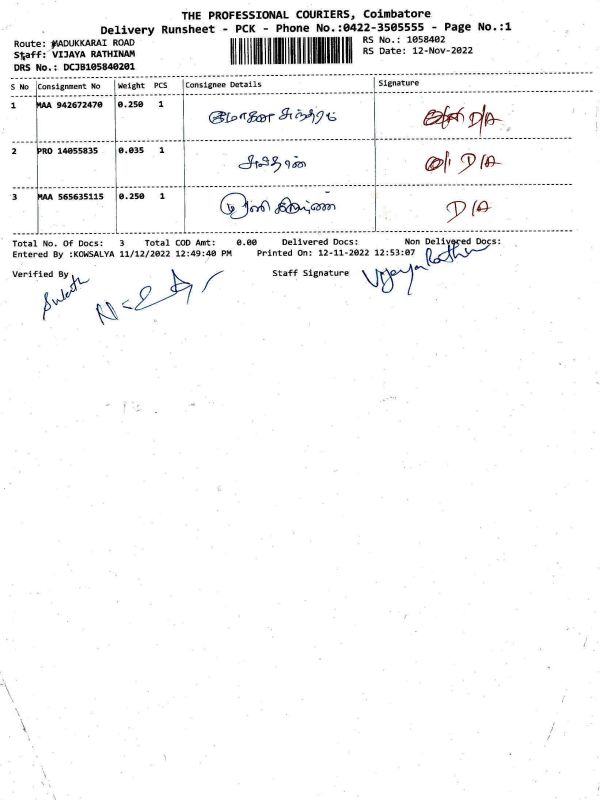 THE PROFESSIONAL COURIERS, Coimbatore
Delivery Runsheet - PCK - Phone No.:0422-3505555 - Page No.:1
Route: MADUKKARAI ROAD
RS No.: 1058402
Staff: VIJAYA RATHINAM
RS Date: 12-Nov-2022
DRS No.: DCJB105840201
S No Consignment No Weight PCS Consignee Details Signature
1 MAA 942672470 0.250 1 D/A
2 PRO 14055835 0.035 1 D/A
3 MAA 565635115 0.250 1 D/A
Total No. Of Docs: 3 Total COD Amt: 0.00 Delivered Docs: Non Delivered Docs:
Entered By :KOWSALYA 11/12/2022 12:49:40 PM Printed On: 12-11-2022 12:53:07
Verified By Staff Signature